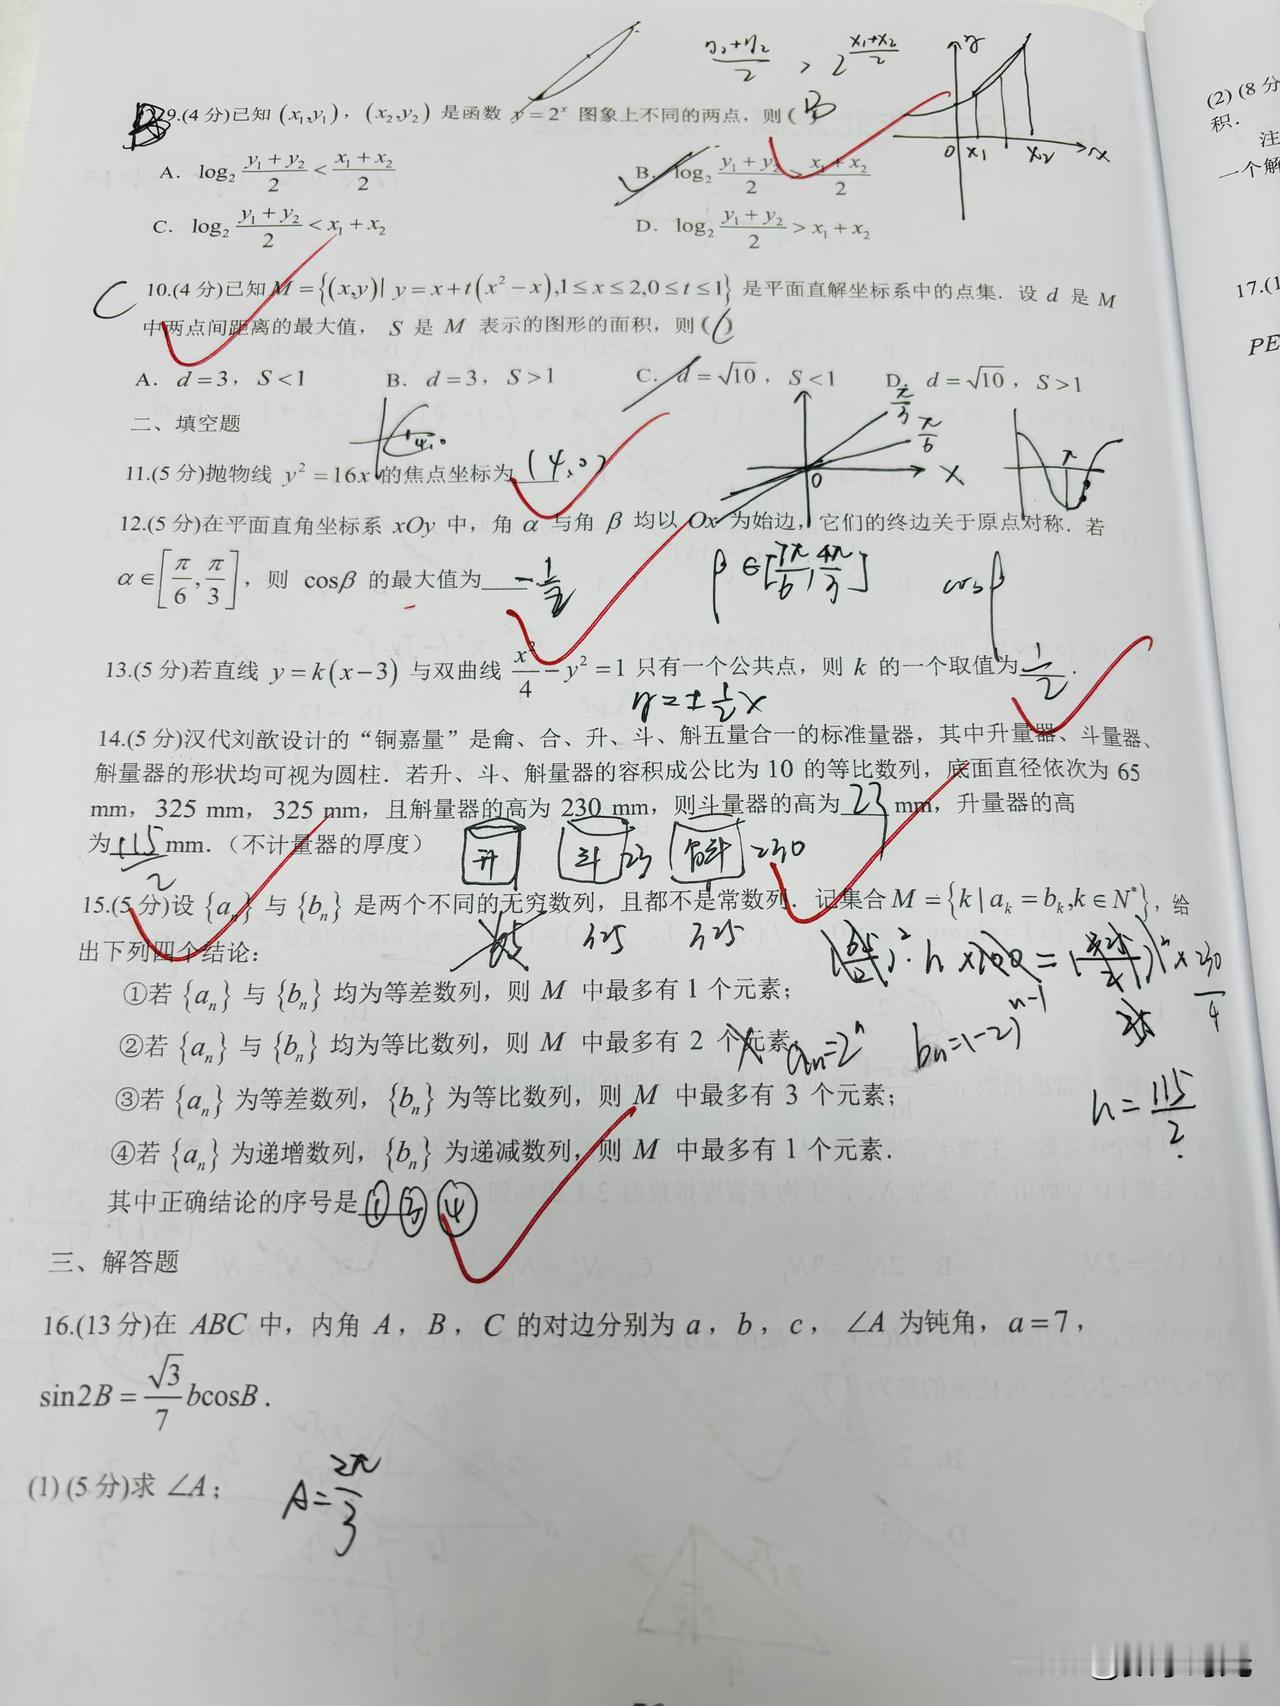 (y₁+y₂)/2 > 2^((x₁+x₂)/2)
y
B 29.(4分)已知 (x₁,y₁)，(x₂,y₂) 是函数 y=2ˣ 图象上不同的两点，则( B )
0 x₁ x₂ x
A. log₂ (y₁+y₂)/2 < (x₁+x₂)/2 B. log₂ (y₁+y₂)/2 > (x₁+x₂)/2
C. log₂ (y₁+y₂)/2 < x₁+x₂ D. log₂ (y₁+y₂)/2 > x₁+x₂
C 10.(4分)已知M={(x,y)| y=x+t(x²-x),1≤x≤2,0≤t≤1} 是平面直解坐标系中的点集. 设 d 是 M
中两点间距离的最大值， S 是 M 表示的图形的面积，则( C )
A. d=3，S<1 B. d=3，S>1 C. d=√10，S<1 D. d=√10，S>1
二、填空题
π/3 π/6 0 x π
11.(5分)抛物线 y²=16x 的焦点坐标为 (4,0)
12.(5分)在平面直角坐标系 xOy 中，角 α 与角 β 均以 Ox 为始边，它们的终边关于原点对称. 若
α∈[π/6,π/3]，则 cosβ 的最大值为 -1/2 .
β∈[7π/6,4π/3] cosβ
13.(5分)若直线 y=k(x-3) 与双曲线 x²/4-y²=1 只有一个公共点，则 k 的一个取值为 1/2 .
y=±1/2x
14.(5分)汉代刘歆设计的“铜嘉量”是龠、合、升、斗、斛五量合一的标准量器，其中升量器、斗量器、
斛量器的形状均可视为圆柱. 若升、斗、斛量器的容积成公比为 10 的等比数列，底面直径依次为 65
mm，325 mm，325 mm，且斛量器的高为 230 mm，则斗量器的高为 23 mm，升量器的高
为 115/2 mm.（不计量器的厚度）
升 斗 23 斛 230
15.(5分)设 {aₙ} 与 {bₙ} 是两个不同的无穷数列，且都不是常数列. 记集合 M={k|aₖ=bₖ,k∈N*}，给
65 325 325
出下列四个结论：
①若 {aₙ} 与 {bₙ} 均为等差数列，则 M 中最多有 1 个元素；
②若 {aₙ} 与 {bₙ} 均为等比数列，则 M 中最多有 2 个元素 × aₙ=2ⁿ bₙ=(-2)ⁿ⁻¹
③若 {aₙ} 为等差数列，{bₙ} 为等比数列，则 M 中最多有 3 个元素；
h=115/2
④若 {aₙ} 为递增数列，{bₙ} 为递减数列，则 M 中最多有 1 个元素.
其中正确结论的序号是 ①③④
三、解答题
16.(13分)在 ABC 中，内角 A，B，C 的对边分别为 a，b，c，∠A 为钝角，a=7，
sin2B=√3/7 bcosB .
(1) (5分)求 ∠A； A=2π/3
(2) (8分
积.
注
一个解
17.(1
PE